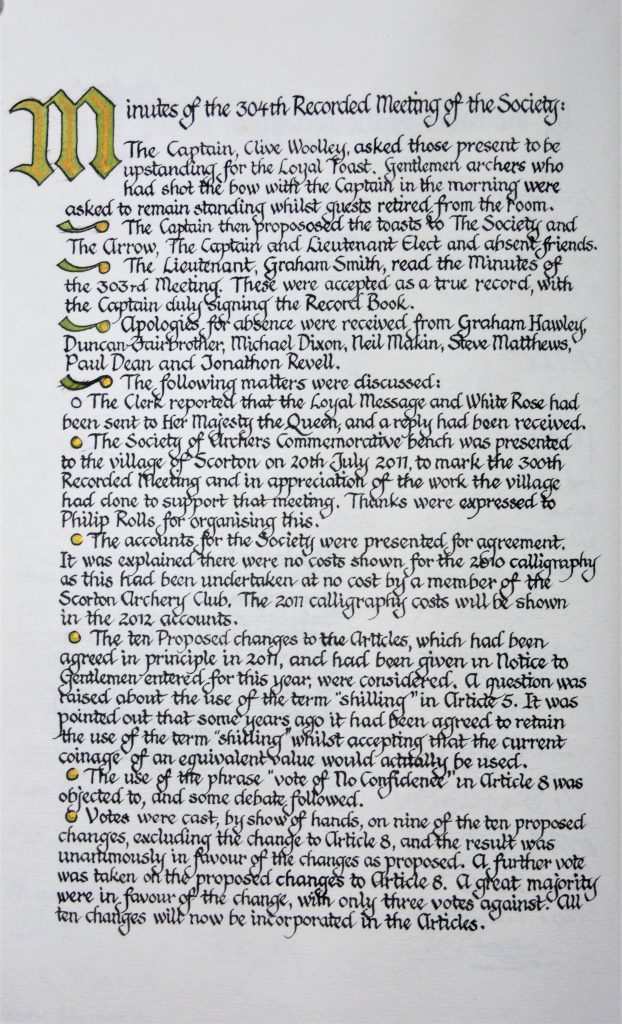 Minutes of the 304th Recorded Meeting of the Society:
The Captain, Clive Woolley, asked those present to be
upstanding for the Loyal Toast. Gentlemen archers who
had shot the bow with the Captain in the morning were
asked to remain standing whilst guests retired from the room.
The Captain then propososed the toasts to The Society and
The Arrow, The Captain and Lieutenant Elect and absent friends.
The Lieutenant, Graham Smith, read the Minutes of
the 303rd Meeting. These were accepted as a true record, with
the Captain duly signing the Record Book.
Apologies for absence were received from Graham Hawley,
Duncan Fairbrother, Michael Dixon, Neil Makin, Steve Matthews,
Paul Dean and Jonathon Revell.
The following matters were discussed:
The Clerk reported that the Loyal Message and White Rose had
been sent to Her Majesty the Queen, and a reply had been received.
The Society of Archers Commemorative bench was presented
to the village of Scorton on 20th July 2011, to mark the 300th
Recorded Meeting and in appreciation of the work the village
had done to support that meeting. Thanks were expressed to
Philip Rolls for organising this.
The accounts for the Society were presented for agreement.
It was explained there were no costs shown for the 2010 calligraphy
as this had been undertaken at no cost by a member of the
Scorton Archery Club. The 2011 calligraphy costs will be shown
in the 2012 accounts.
The ten Proposed changes to the Articles, which had been
agreed in principle in 2011, and had been given in Notice to
Gentlemen entered for this year, were considered. A question was
raised about the use of the term "shilling" in Article 5. It was
pointed out that some years ago it had been agreed to retain
the use of the term "shilling" whilst accepting that the current
coinage of an equivalent value would actually be used.
The use of the phrase "vote of No Confidence" in Article 8 was
objected to, and some debate followed.
Votes were cast, by show of hands, on nine of the ten proposed
changes, excluding the change to Article 8, and the result was
unanimously in favour of the changes as proposed. A further vote
was taken on the proposed changes to Article 8. A great majority
were in favour of the change, with only three votes against. All
ten changes will now be incorporated in the Articles.